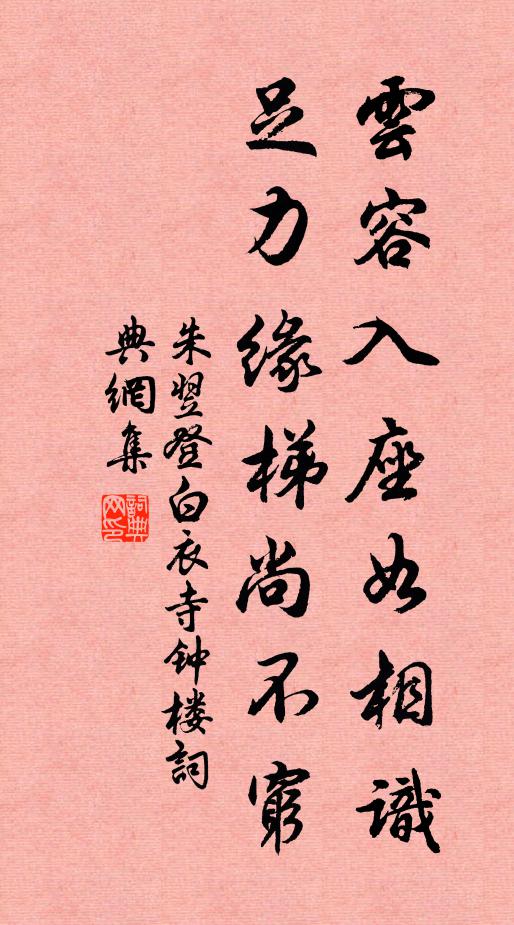 雲容入座如相識
足力緣梯尚不窮
朱翌登白衣寺钟楼詞
典網集
詞典网印